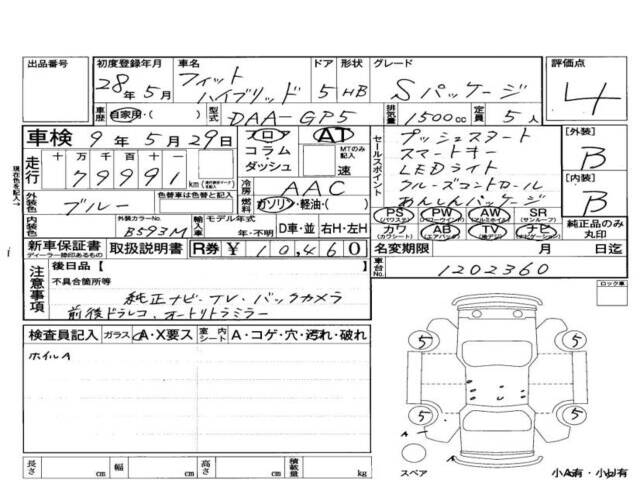 出品番号
初度登録年月 28年5月
車名 フィット ハイブリッド
ドア 5
形状 HB
グレード Sパッケージ
評価点 4
車歴 自家用・( )
型式 DAA-GP5
排気量 1500cc
定員 5人
車検 9年5月29日
フロア コラム ダッシュ
AT
MTのみ記入
速
セールスポイント
プッシュスタート
スマートキー
LEDライト
クルーズコントロール
あんしんパッケージ
[外装] B
[内装] B
現在色を記入→
走行 十万千百十一
79991 km
冷房 AAC
燃料 ガソリン・軽油・( )
外装色 ブルー
色替車は色替と記入
内装色
外装カラーNo. B593M
輸入車
モデル年式 年・不明
D車・並
右H・左H
PS (パワステ)
PW (パワーウィンドウ)
AW (アルミホイル)
SR (サンルーフ)
カワ (カワシート)
AB (エアバック)
TV (地デジ)
ナビ (ナビゲーション)
純正品のみ丸印
新車保証書
ディーラー捺印あるもの
取扱説明書
R券 ¥10,460
名変期限 月 日迄
車台No. 1202360
注意事項
後日品 [ ]
不具合箇所等
純正ナビ・TV・バックカメラ
前後ドラレコ、オートリトラミラー
ロック車
検査員記入
ガラス A・X要ス
室内シート A・コゲ・穴・汚れ・破れ
ホイルA
5 5
5 5
A
スペア
小A有・小U有
長さ cm
幅 cm
高さ cm
積載量 kg